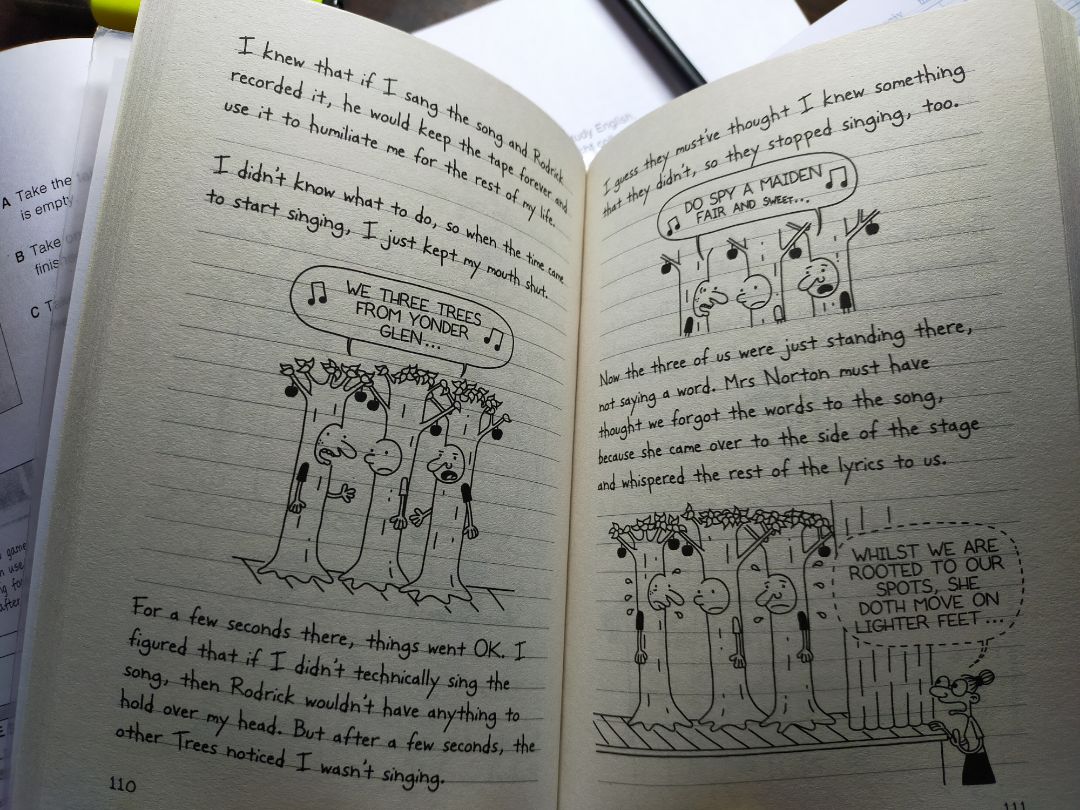 A Take the
is empty
B Take
finis
C T
I knew that if I sang the song and Rodrick
recorded it, he would keep the tape forever and
use it to humiliate me for the rest of my life.
I didn't know what to do, so when the time came
to start singing, I just kept my mouth shut.
WE THREE TREES
FROM YONDER
GLEN...
For a few seconds there, things went OK. I
figured that if I didn't technically sing the
song, then Rodrick wouldn't have anything to
hold over my head. But after a few seconds, the
other Trees noticed I wasn't singing.
110
udy English
I guess they must've thought I knew something
that they didn't, so they stopped singing, too.
DO SPY A MAIDEN
FAIR AND SWEET...
Now the three of us were just standing there,
not saying a word. Mrs Norton must have
thought we forgot the words to the song,
because she came over to the side of the stage
and whispered the rest of the lyrics to us.
WHILST WE ARE
ROOTED TO OUR
SPOTS, SHE
DOTH MOVE ON
LIGHTER FEET...
111